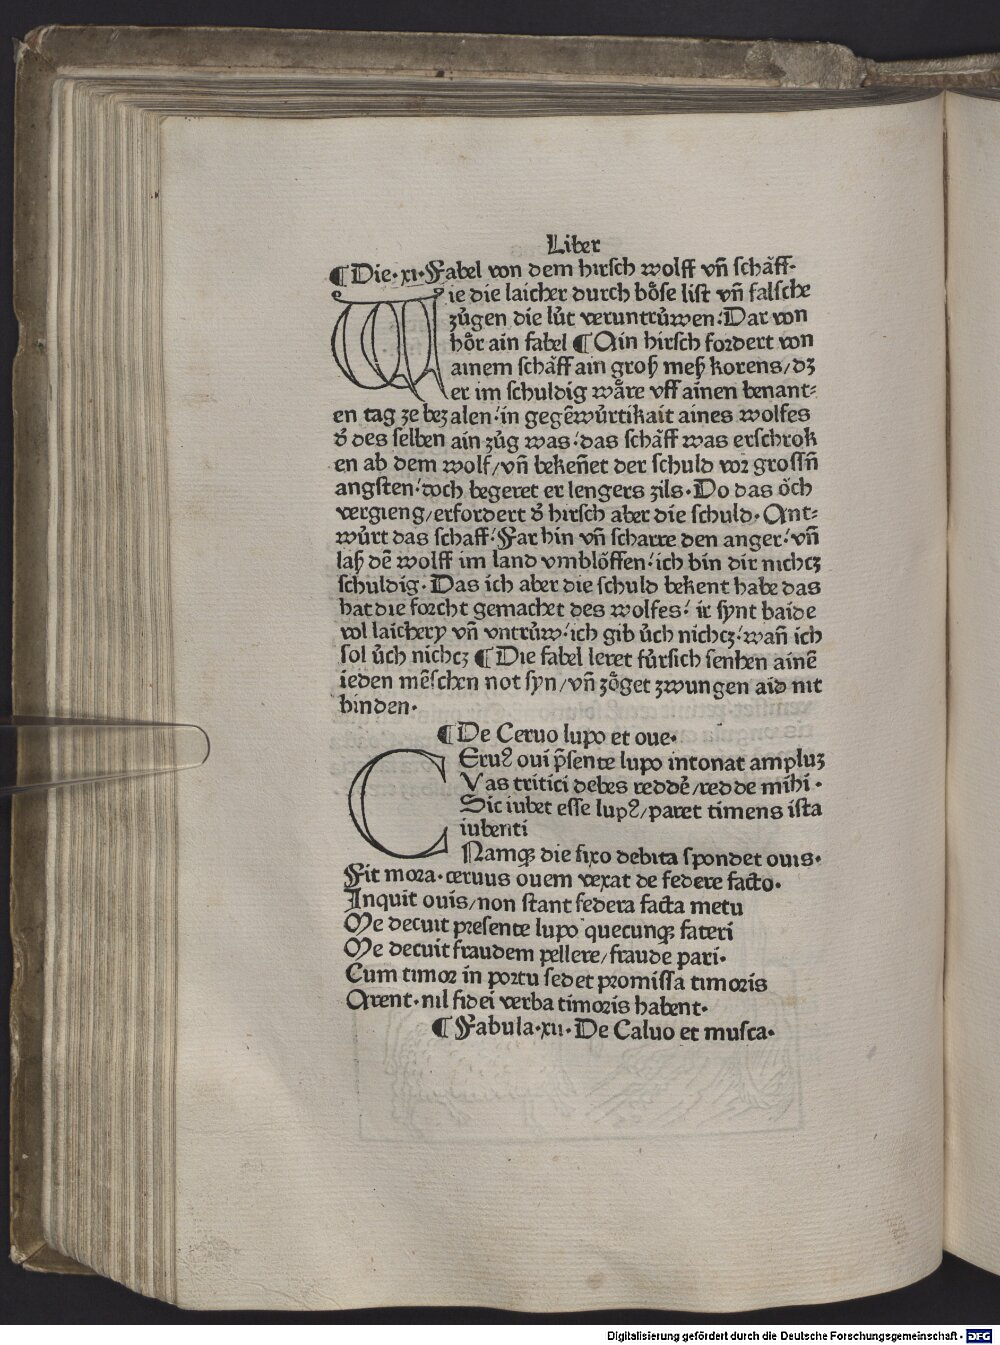 Liber
¶ Die · xi · Fabel von dem hirsch wolff vñ schåff·
Wie die laicher durch bo̊se list vñ falsche
zu̇gen die lu̇t veruntru̇wen: Dar von
ho̊r ain fabel ¶ Ain hirsch fordert von
ainem schåff ain groß meß korens/dʒ
er im schuldig wåre vff ainen benant⸗
en tag ze bezalen: in gegẽwu̇rtikait aines wolfes
d̾ des selben ain zu̇g was: das schåff was erschrok
en ab dem wolf/vñ bekeñet der schuld vor grossñ
angsten: doch begeret er lengers zils· Do das o̊ch
vergieng/erfordert d̾ hirsch aber die schuld· Ant⸗
wu̇rt das schaff: Far hin vñ scharre den anger: vñ
laß dẽ wolff im land vmblo̊ffen: ich bin dir nichcʒ
schuldig· Das ich aber die schuld bekent habe das
hat die forcht gemachet des wolfes: ir synt baide
vol laichery vñ vntru̇w: ich gib u̇ch nichcʒ: wañ ich
sol u̇ch nichcʒ ¶ Die fabel leret fu̇rsich senhen ainẽ
ieden mẽschen not syn/vñ zo̊get zwungen aid nit
binden·
¶ De Ceruo lupo et oue·
Ceruꝰ oui p̃sente lupo intonat ampluʒ
Vas tritici debes reddẽ/redde mihi·
Sic iubet esse lupꝰ/paret timens ista
iubenti
Namqꝫ die fixo debita spondet ouis·
Fit mora· ceruus ouem vexat de federe facto·
Inquit ouis/non stant federa facta metu
Me decuit presente lupo quecunqꝫ fateri
Me decuit fraudem pellere/fraude pari·
Cum timor in portu sedet promissa timoris
Arent· nil fidei verba timoris habent·
¶ Fabula · xii · De Caluo et musca·
Digitalisierung gefördert durch die Deutsche Forschungsgemeinschaft - DFG